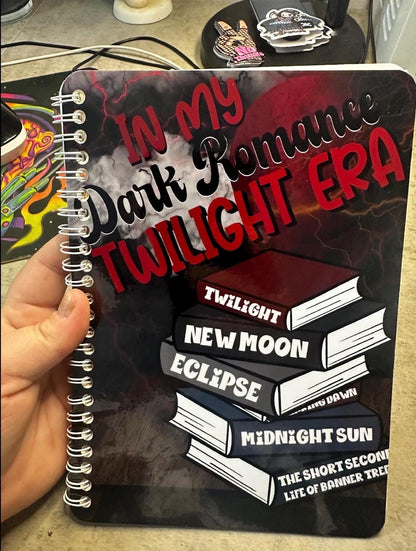 IN MY
Dark Romance
TWILIGHT ERA
TWILIGHT
NEW MOON
ECLIPSE
KING DAWN
MIDNIGHT SUN
THE SHORT SECOND
LIFE OF BANNER TREE